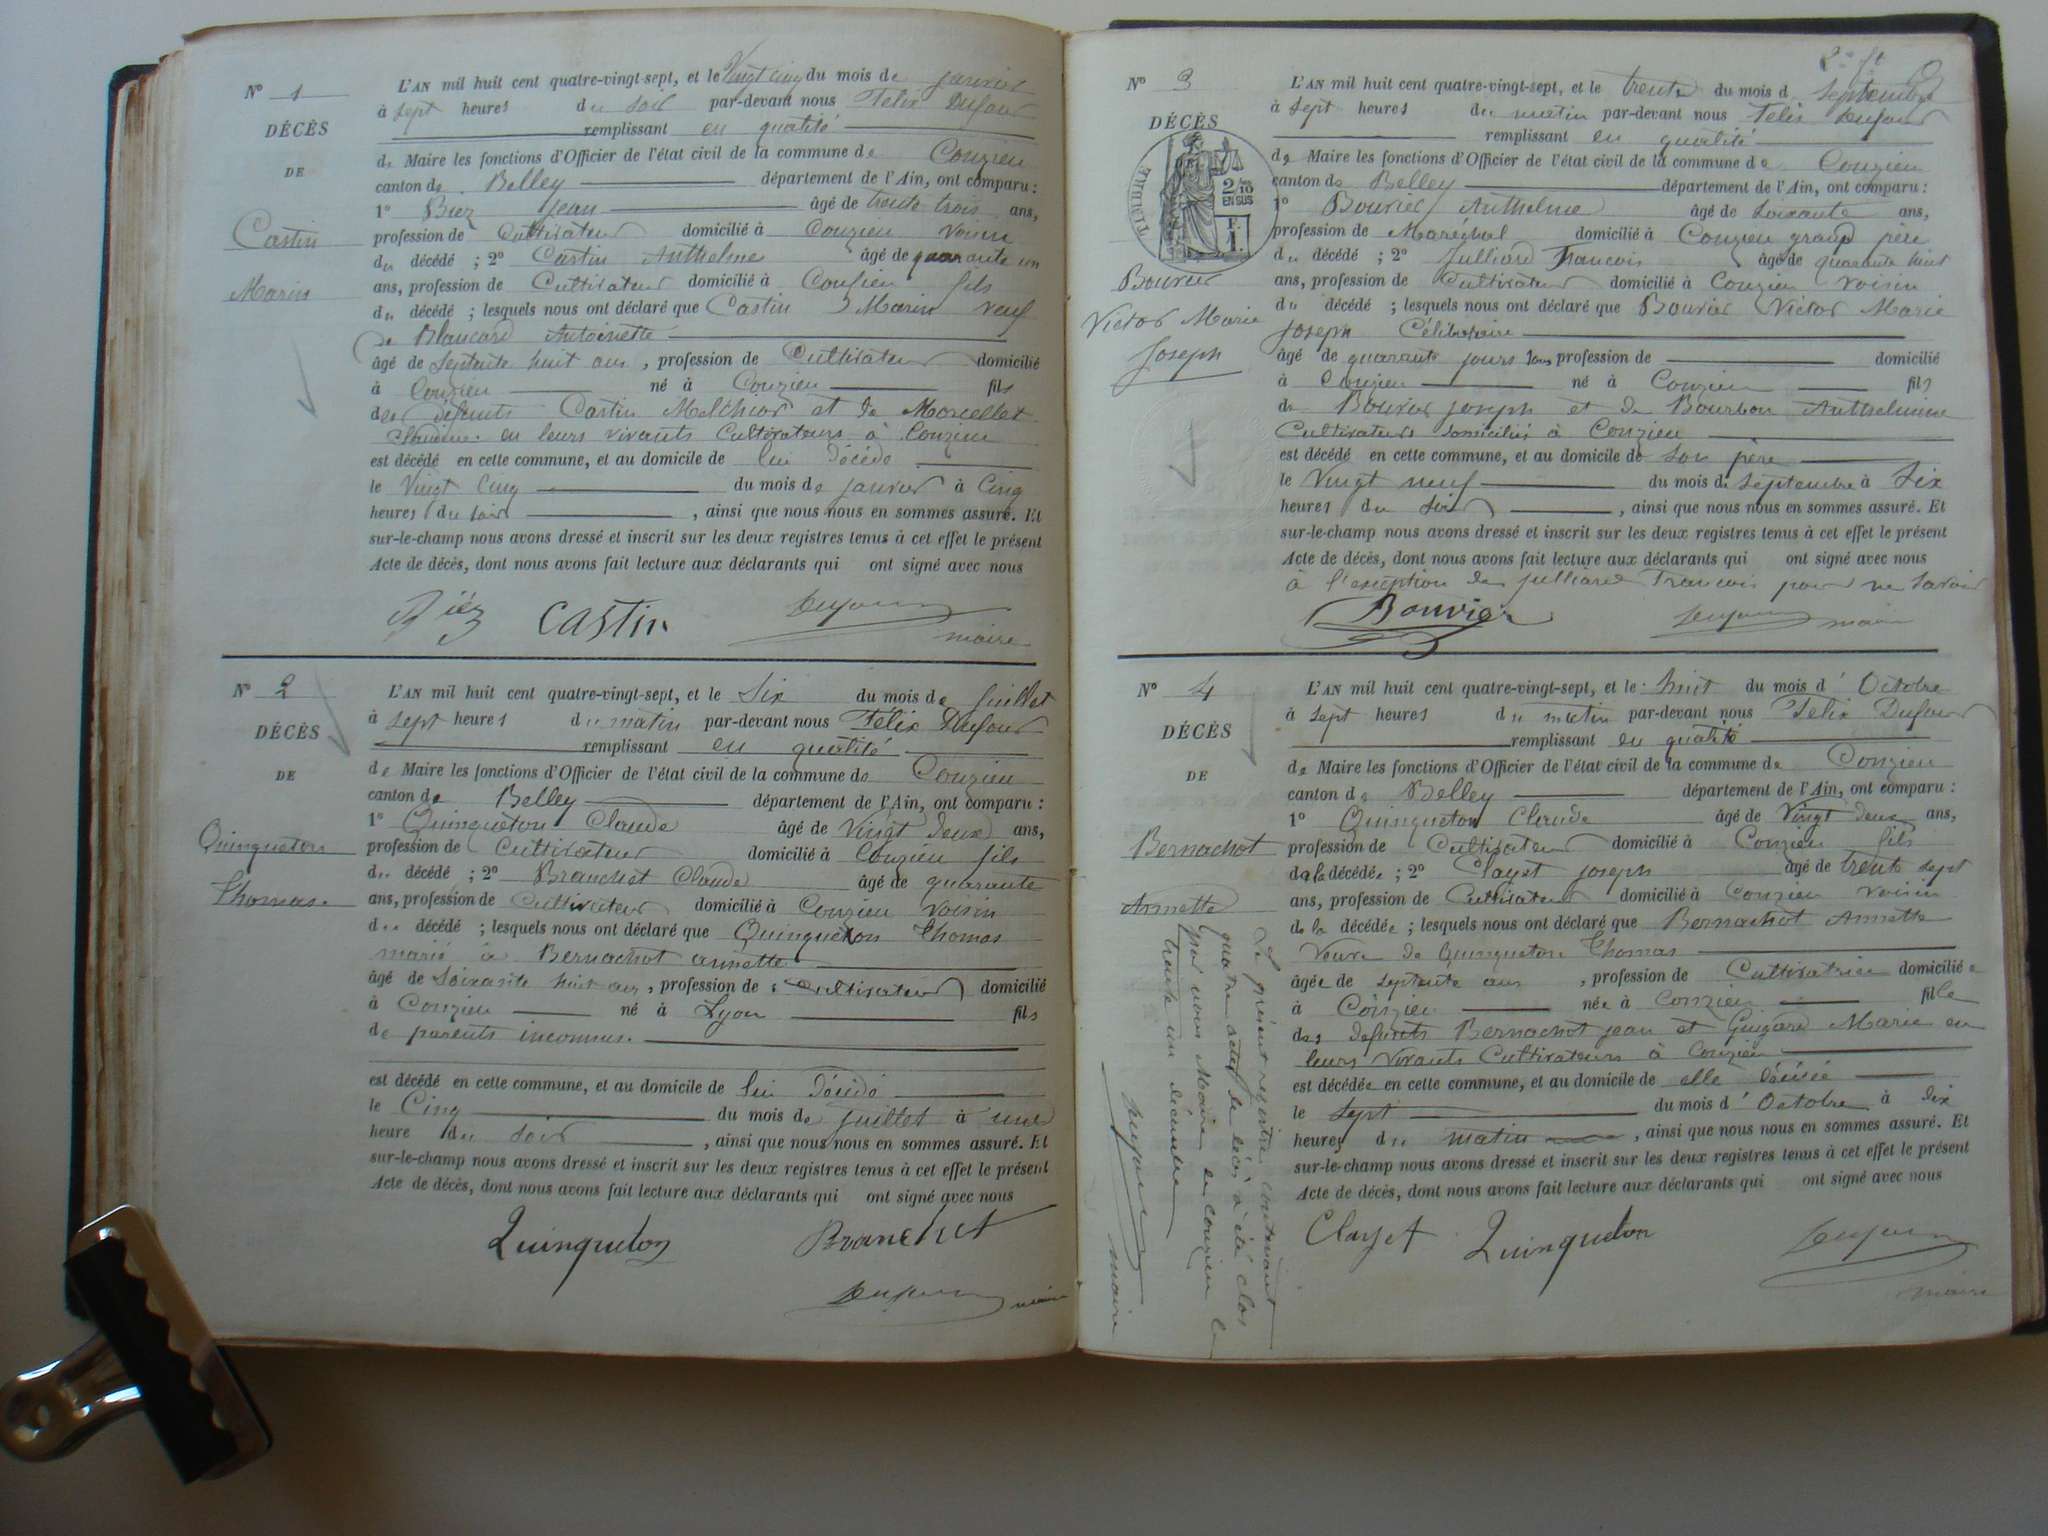 N° 1
DÉCÈS
DE
Castin
Marin
L'AN mil huit cent quatre-vingt-sept, et le Vingt cinq du mois de janvier
à sept heures du soir par-devant nous Félix Dufour
remplissant en qualité
de Maire les fonctions d'Officier de l'état civil de la commune de Conzieu
canton de Belley département de l'Ain, ont comparu :
1° Biez Jean âgé de trente trois ans,
profession de Cultivateur domicilié à Conzieu voisin
du décédé ; 2° Castin Anthelme âgé de quarante un
ans, profession de Cultivateur domicilié à Conzieu fils
du décédé ; lesquels nous ont déclaré que Castin Marin veuf
de Blancard Antoinette
âgé de septante huit ans, profession de Cultivateur domicilié
à Conzieu né à Conzieu fils
des défunts Castin Melchior et de Morcellet
Claudine en leurs vivants Cultivateurs à Conzieu
est décédé en cette commune, et au domicile de lui décédé
le Vingt Cinq du mois de janvier à Cinq
heures du soir, ainsi que nous nous en sommes assuré. Et
sur-le-champ nous avons dressé et inscrit sur les deux registres tenus à cet effet le présent
Acte de décès, dont nous avons fait lecture aux déclarants qui ont signé avec nous
Biéz Castin Dufour
maire
N° 2
DÉCÈS
DE
Quinqueton
Thomas.
L'AN mil huit cent quatre-vingt-sept, et le Six du mois de Juillet
à sept heures du matin par-devant nous Félix Dufour
remplissant en qualité
de Maire les fonctions d'Officier de l'état civil de la commune de Conzieu
canton de Belley département de l'Ain, ont comparu :
1° Quinqueton Claude âgé de Vingt deux ans,
profession de Cultivateur domicilié à Conzieu fils
du décédé ; 2° Branchet Claude âgé de quarante
ans, profession de Cultivateur domicilié à Conzieu voisin
du décédé ; lesquels nous ont déclaré que Quinqueton Thomas
marié à Bernachot annette
âgé de Soixante huit ans, profession de Cultivateur domicilié
à Conzieu né à Lyon fils
de parents inconnus.
est décédé en cette commune, et au domicile de lui décédé
le Cinq du mois de juillet à une
heure du soir, ainsi que nous nous en sommes assuré. Et
sur-le-champ nous avons dressé et inscrit sur les deux registres tenus à cet effet le présent
Acte de décès, dont nous avons fait lecture aux déclarants qui ont signé avec nous
Quinqueton Branchet
Dufour maire
2e ft
N° 3
DÉCÈS
TIMBRE
2/10
EN SUS
F.
1.
Bouvier
Victor Marie
Joseph
L'AN mil huit cent quatre-vingt-sept, et le trente du mois d Septembre
à sept heures du matin par-devant nous Felix Dufour
remplissant en qualité
de Maire les fonctions d'Officier de l'état civil de la commune de Conzieu
canton de Belley département de l'Ain, ont comparu :
1° Bouvier Anthelme âgé de soixante ans,
profession de Maréchal domicilié à Conzieu grand père
du décédé ; 2° Julliard Francois âgé de quarante huit
ans, profession de Cultivateur domicilié à Conzieu voisin
du décédé ; lesquels nous ont déclaré que Bouvier Victor Marie
Joseph Célibataire
âgé de quarante jours sans profession de domicilié
à Conzieu né à Conzieu fils
de Bouvier joseph et de Bourbon Anthelmine
Cultivateurs domiciliés à Conzieu
est décédé en cette commune, et au domicile de son père
le Vingt neuf du mois de septembre à Six
heures du soir, ainsi que nous nous en sommes assuré. Et
sur-le-champ nous avons dressé et inscrit sur les deux registres tenus à cet effet le présent
Acte de décès, dont nous avons fait lecture aux déclarants qui ont signé avec nous
à l'exception de julliard Francois pour ne savoir
Bouvier Dufour maire
N° 4
DÉCÈS
DE
Bernachot
Annette
L'AN mil huit cent quatre-vingt-sept, et le huit du mois d' Octobre
à sept heures du matin par-devant nous Felix Dufour
remplissant en qualité
de Maire les fonctions d'Officier de l'état civil de la commune de Conzieu
canton de Belley département de l'Ain, ont comparu :
1° Quinqueton Claude âgé de Vingt deux ans,
profession de Cultivateur domicilié à Conzieu fils
de la décédée ; 2° Clayet joseph âgé de trente sept
ans, profession de Cultivateur domicilié à Conzieu voisin
de la décédée ; lesquels nous ont déclaré que Bernachot Annette
Veuve de Quinqueton Thomas
âgée de septante ans, profession de Cultivatrice domiciliée
à Conzieu née à Conzieu fille
des défunts Bernachot jean et Guigard Marie en
leurs vivants Cultivateurs à Conzieu
est décédée en cette commune, et au domicile de elle décédée
le sept du mois d' Octobre à dix
heures du matin, ainsi que nous nous en sommes assuré. Et
sur-le-champ nous avons dressé et inscrit sur les deux registres tenus à cet effet le présent
Acte de décès, dont nous avons fait lecture aux déclarants qui ont signé avec nous
Clayet Quinqueton Dufour
maire
Le présent registre contenant
quatre actes de décès a été clos
par nous Maire de Conzieu le
trente un décembre
Dufour maire